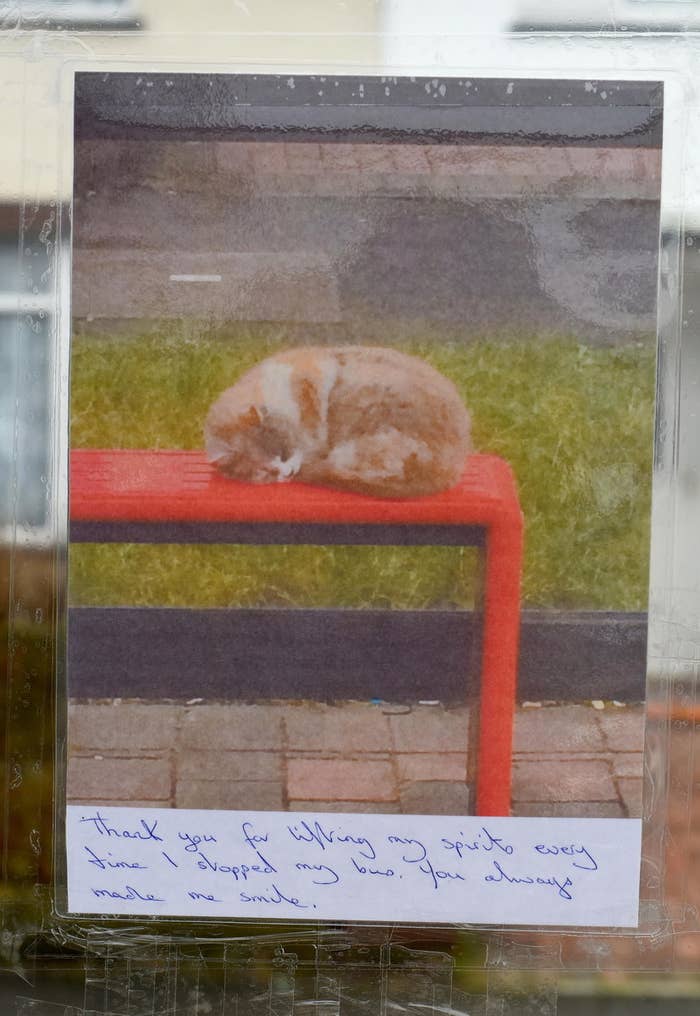 Thank you for lifting my spirits every
time I stopped my bus. You always
made me smile.